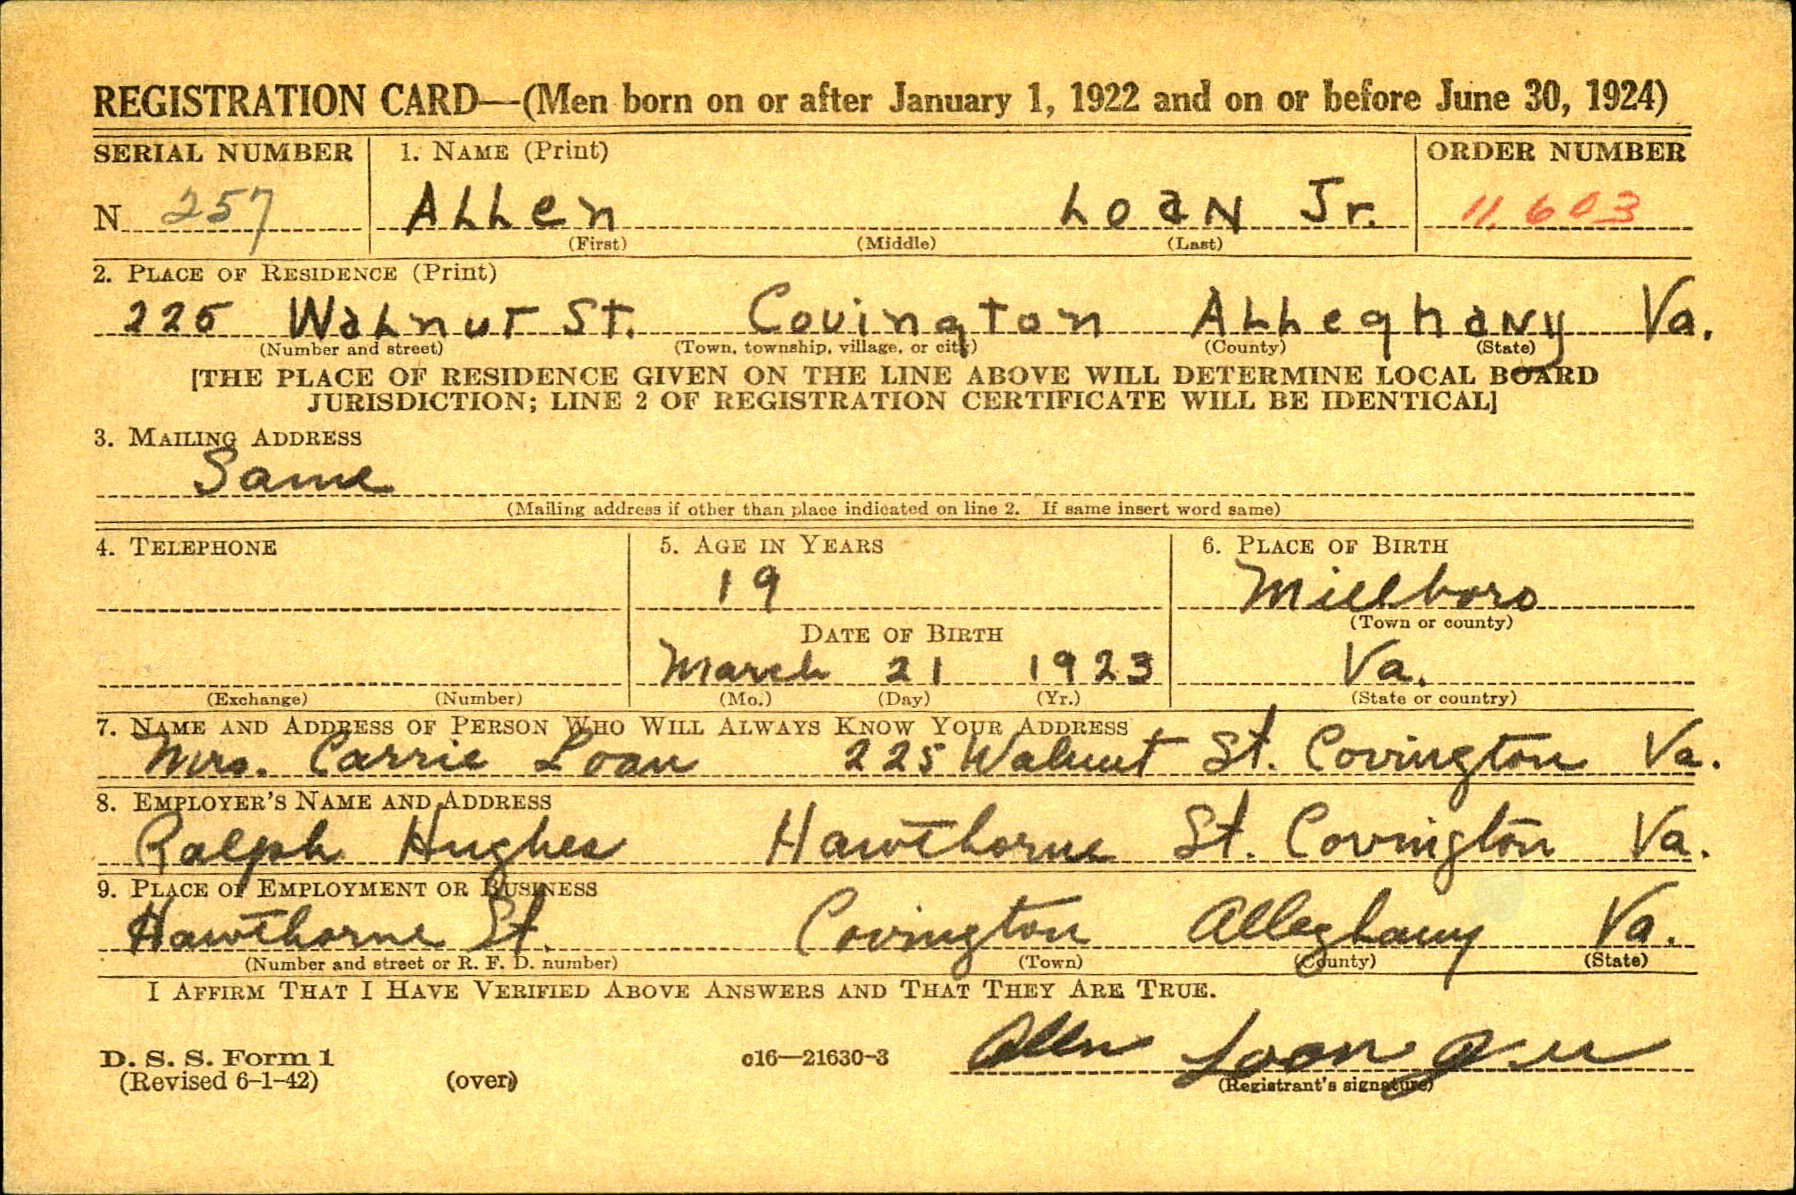 REGISTRATION CARD—(Men born on or after January 1, 1922 and on or before June 30, 1924)
SERIAL NUMBER 1. NAME (Print) ORDER NUMBER
N 257 ALLen LOAN Jr. 11,603
(First) (Middle) (Last)
2. PLACE OF RESIDENCE (Print)
225 WaLnut St. Covington ALLeghany Va.
(Number and street) (Town, township, village, or city) (County) (State)
[THE PLACE OF RESIDENCE GIVEN ON THE LINE ABOVE WILL DETERMINE LOCAL BOARD
JURISDICTION; LINE 2 OF REGISTRATION CERTIFICATE WILL BE IDENTICAL]
3. MAILING ADDRESS
Same
(Mailing address if other than place indicated on line 2. If same insert word same)
4. TELEPHONE 5. AGE IN YEARS 6. PLACE OF BIRTH
19 Millboro
(Town or county)
DATE OF BIRTH
March 21 1923 Va.
(Exchange) (Number) (Mo.) (Day) (Yr.) (State or country)
7. NAME AND ADDRESS OF PERSON WHO WILL ALWAYS KNOW YOUR ADDRESS
Mrs. Carrie Loan 225 Walnut St. Covington Va.
8. EMPLOYER'S NAME AND ADDRESS
Ralph Hughes Hawthorne St. Covington Va.
9. PLACE OF EMPLOYMENT OR BUSINESS
Hawthorne St. Covington Alleghany Va.
(Number and street or R. F. D. number) (Town) (County) (State)
I AFFIRM THAT I HAVE VERIFIED ABOVE ANSWERS AND THAT THEY ARE TRUE.
D. S. S. Form 1 c16—21630-3 Allen Loan
(Revised 6-1-42) (over) (Registrant's signature)